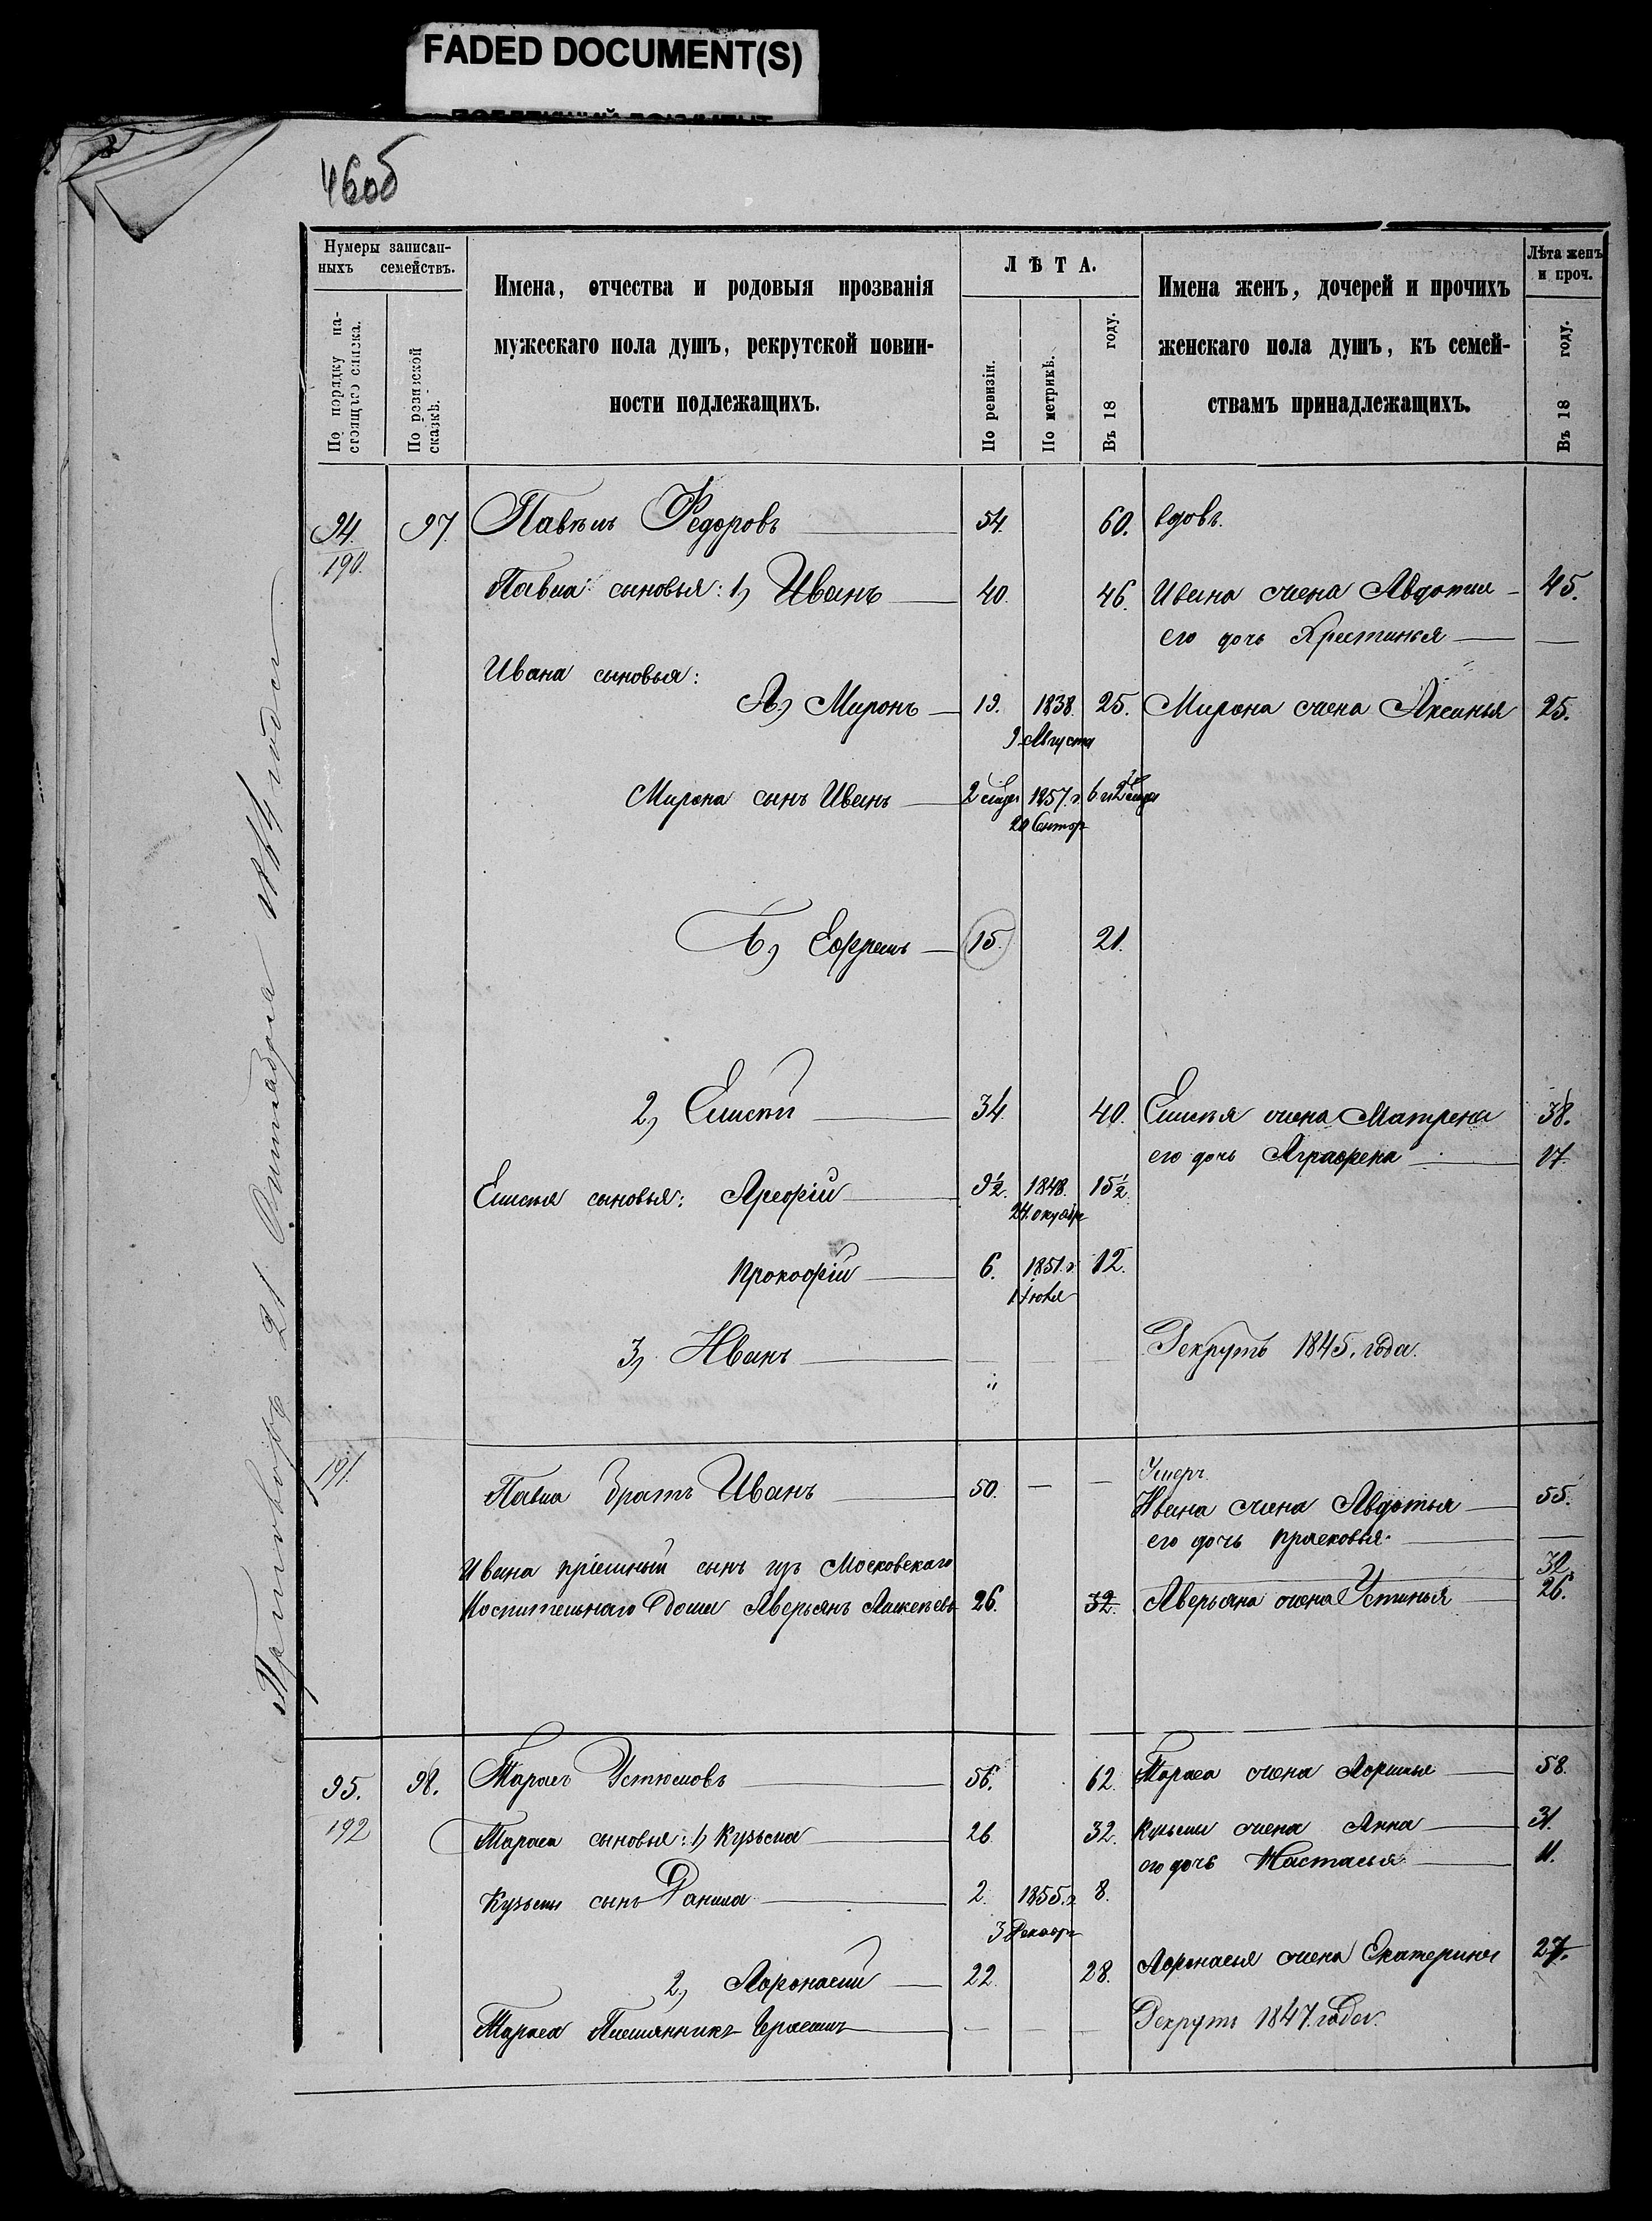 FADED DOCUMENT(S)
46об
Нумеры записан-
ныхъ семействъ.
По порядку на-
стоящаго списка.
По ревизской
сказкѣ.
Имена, отчества и родовыя прозванія
мужескаго пола душъ, рекрутской повин-
ности подлежащихъ.
ЛѢТА.
По ревизіи.
По метрикѣ.
Въ 18 году.
Имена женъ, дочерей и прочихъ
женскаго пола душъ, къ семей-
ствамъ принадлежащихъ.
Лѣта женъ
и проч.
Въ 18 году.
94. 97. Павелъ Федоровъ 54. 60. вдовъ.
190.
Павла сыновья: 1, Иванъ 40. 46. Ивана жена Авдотья 45.
его дочь Хрестинья —
Ивана сыновья:
А, Миронъ 19. 1838. 25. Мирона жена Аксинья 25.
9 Августа
Мирона сынъ Иванъ 2 1857. г 6 и 2
20 Сентяр
Б, Ефремъ 15. 21.
2, Елисей 34. 40. Елисея жена Матрена 38.
его дочь Аграфена 17.
Елисея сыновья: Арефій 9½. 1848. 15½.
24 октябр
Прокофій 6. 1851. г 12.
1 Июля
3, Иванъ Рекрутъ 1845. года.
"
191.
Умеръ.
Павла братъ Иванъ 50. — — Ивана жена Авдотья 55.
его дочь Прасковья —
Ивана пріемный сынъ изъ Московскаго 32.
Воспительнаго Дома Аверьянъ Алексѣевъ 26. 32. Аверьяна жена Устинья 26.
95. 98. Тарасъ Устюмовъ 56. 62. Тараса жена 58.
192
Тараса сыновья: 1, Кузьма 26. 32. Кузьмы жена Анна 31.
его дочь Настасья 11.
Кузьмы сынъ Данила 2. 1855. г 8.
3 Декабр
2, Афонасій 22. 28. Афонасья жена Екатерина 27.
Тараса Племянникъ Герасимъ — — — Рекрутъ 1847. года.
Приговоръ 21